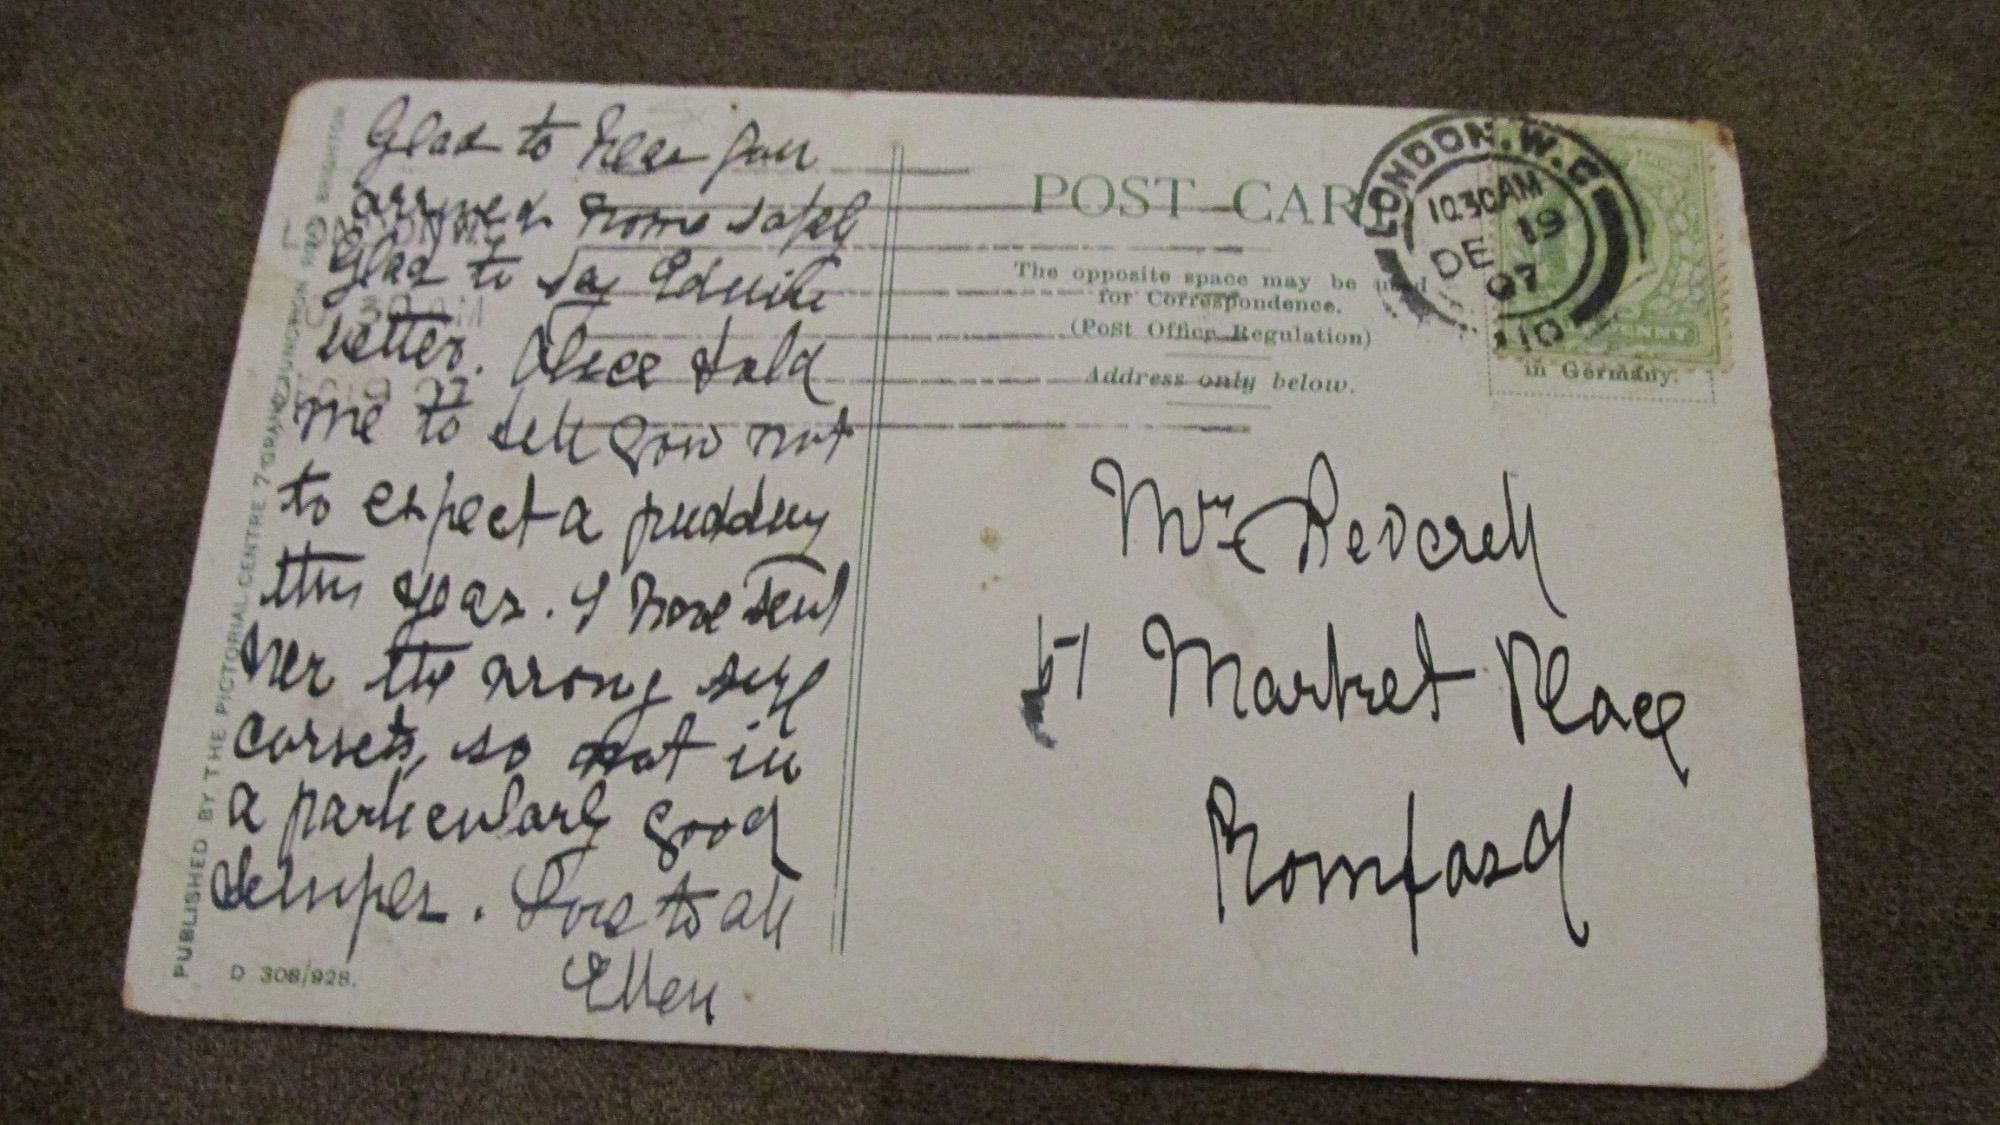 Glad to hear you
arrived home safely
Glad to say Edwin is
better. Alice told
me to tell you not
to expect a pudding
this year. I have sent
her the wrong size
corsets, so not in
a particularly good
temper. Love to all
Ellen
POST CARD
The opposite space may be used
for Correspondence.
(Post Office Regulation)
Address only below.
LONDON. W.C
10.30AM
DE 19
07
PENNY
in Germany.
Mrs Peverell
51 Market Place
Romford
PUBLISHED BY THE PICTORIAL CENTRE 7 GRAND JUNCTION RD BRIGHTON
D 308/928.